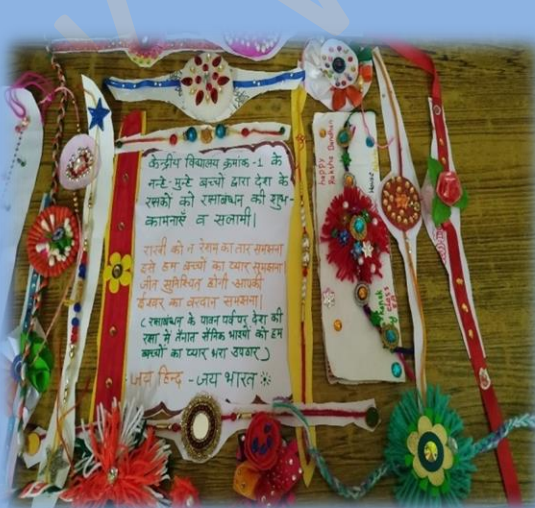 केन्द्रीय विद्यालय क्रमांक -1 के
नन्हे-मुन्हे बच्चों द्वारा देश के
रक्षकों को रक्षाबंधन की शुभ-
कामनाएँ व सलामी।
राखी को न रेशम का तार समझना
इसे हम बच्चों का प्यार समझना
जीत सुनिश्चित होगी आपकी
ईश्वर का वरदान समझना।
(रक्षाबंधन के पावन पर्व पर देश की
रक्षा में तैनात सैनिक भाइयों को हम
बच्चों का प्यार भरा उपहार)
जय हिन्द - जय भारत
happy
Raksha Bandhan
class